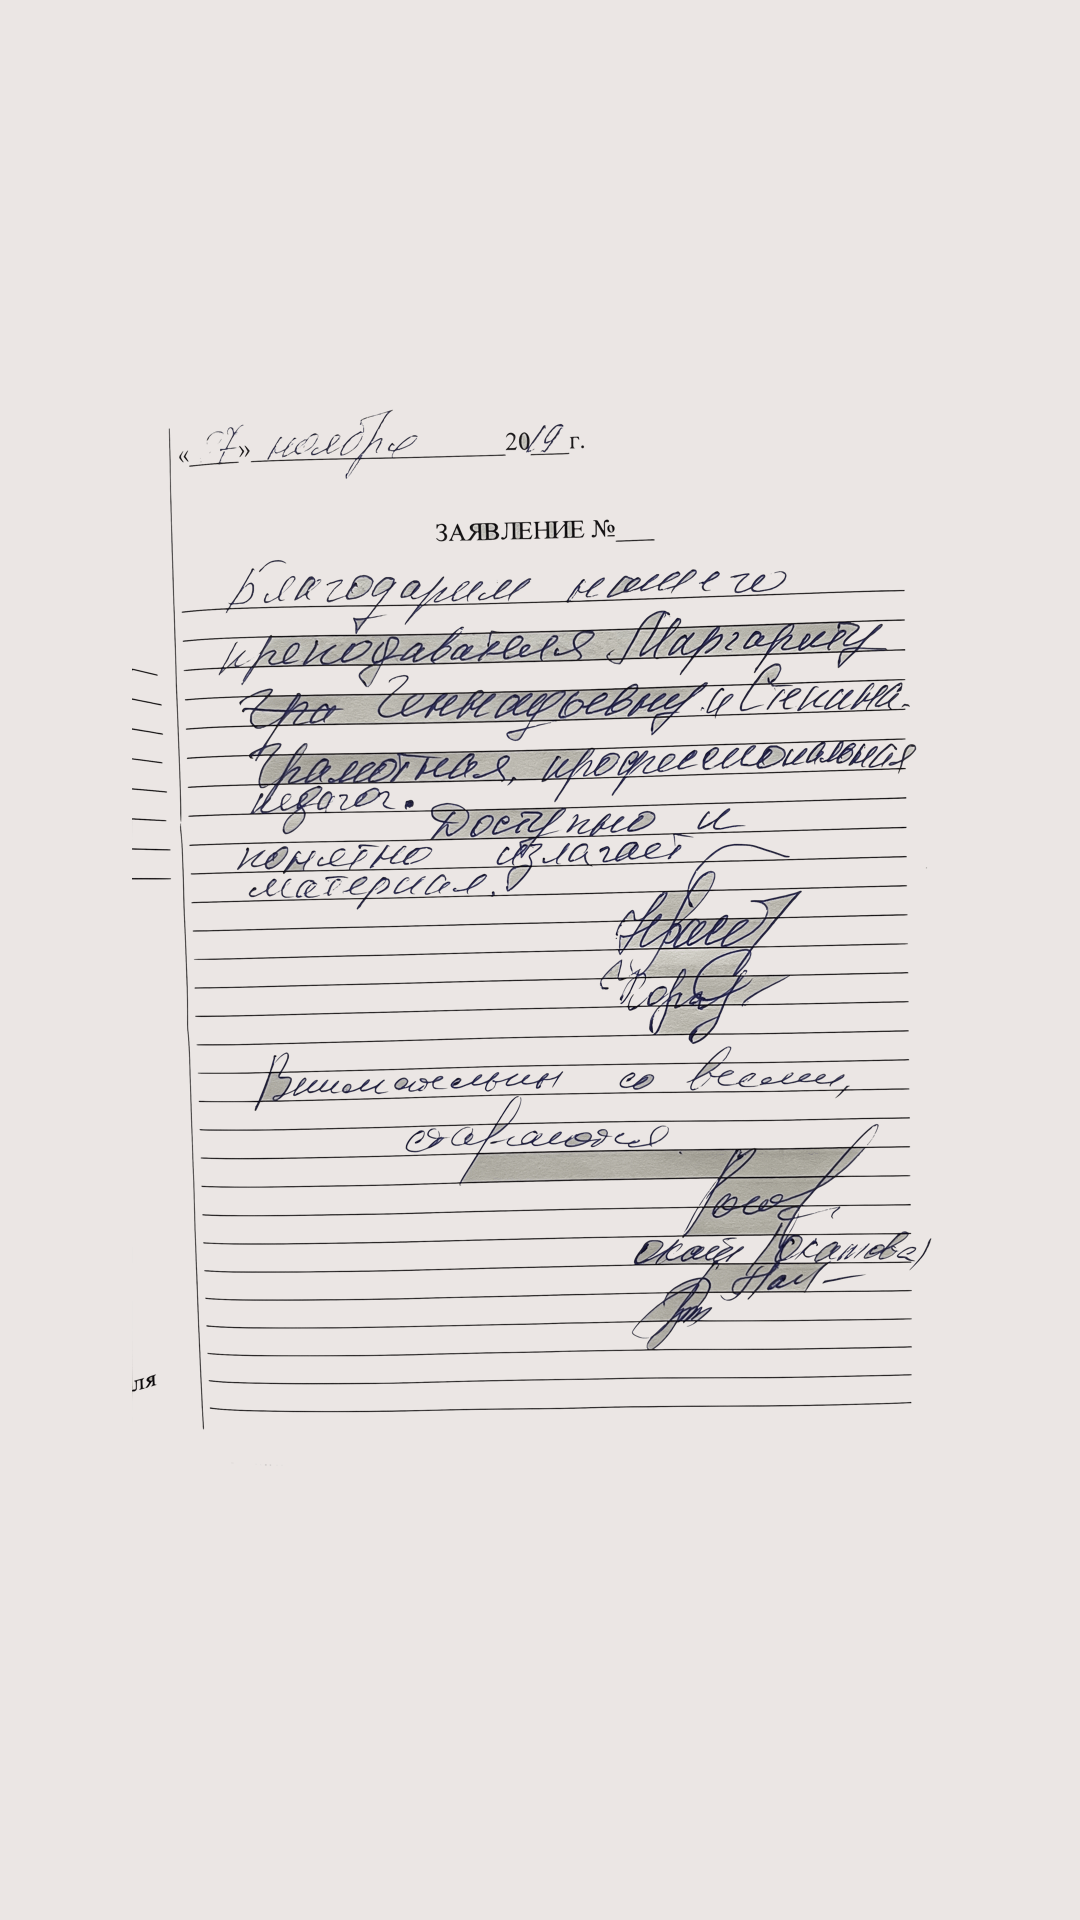 «27» ноября 2019 г.
ЗАЯВЛЕНИЕ №___
Благодарим нашего
преподавателя Маргариту
Гра Геннадьевну и Стенина.
Грамотная, профессиональная
педагог.
Доступно и
понятно излагает
материал.
Внимательны со всеми,
стараются.
(Окатова)
ля